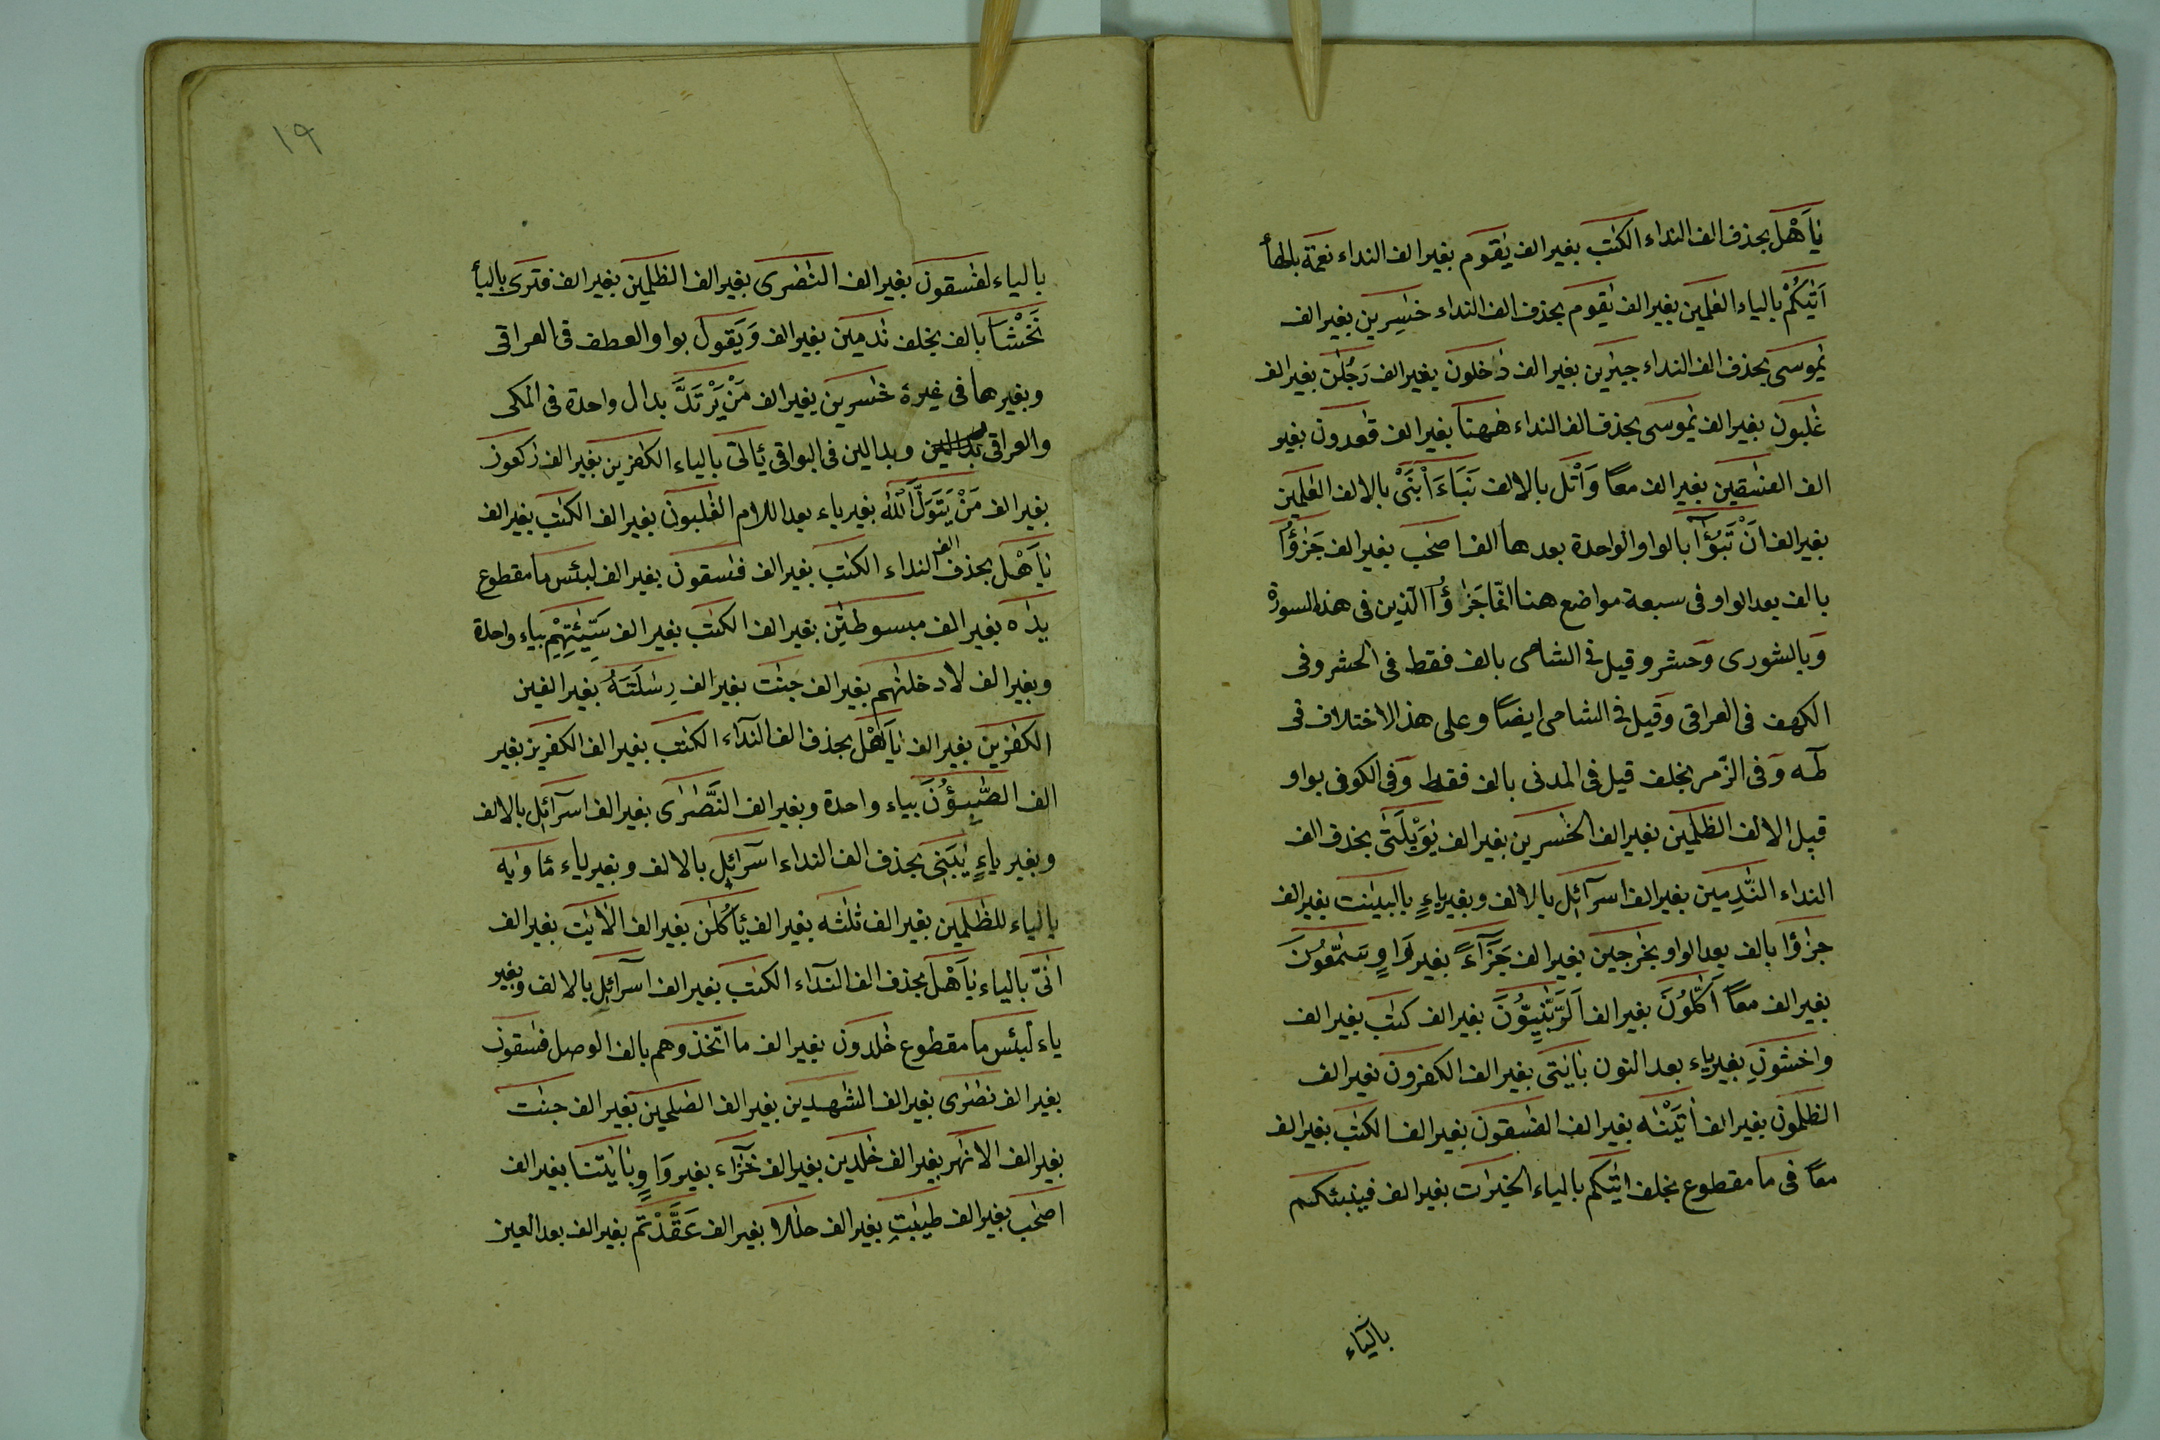 يٰاَهْلَ بحذف الف النداء الكتٰب بغير الف يٰقوم بغير الف النداء نعمة بالهاء
اٰتٰيكُمْ بالياء العٰلمين بغير الف يٰقوم بحذف الف النداء خٰسِرين بغير الف
يٰموسى بحذف الف النداء جبٰرين بغير الف دٰخلون بغير الف رَجُلٰن بغير الف
غٰلبون بغير الف يٰموسى بحذف الف النداء هٰهنا بغير الف قٰعدون بغير
الف الفٰسقين بغير الف معًا وَاتْل بالالف نَبَاَءَ ابْنَىْ بالالف العٰلمين
بغير الف اَنْ تَبُوْٓأَ بالواو الواحدة بعدها الف اصحٰب بغير الف جَزٰٓؤُا
بالف بعد الواو فى سبعة مواضع هنا انّما جَزٰٓؤُا الّذين فى هذه السورة
وبالشورى وحشر وقيل فى الشامى بالف فقط فى الحشر وفى
الكهف فى العراقى وقيل فى الشامى ايضًا وعلى هذا الاختلاف فى
طٰه وفى الزّمر بخلف قيل فى المدنى بالف فقط وفى الكوفى بواو
قبل الالف الظٰلمين بغير الف الخٰسرين بغير الف يٰوَيْلَتٰى بحذف الف
النداء النّٰدِمين بغير الف اسرآئِل بالالف وبغير ياءٍ بالبينٰت بغير الف
جزٰؤا بالف بعد الواو بخٰرجين بغير الف جَزَآءً بغير وَاوٍ سَمّٰعُوْنَ
بغير الف معًا اَكّٰلُوْنَ بغير الف اَلرَّبّٰنِيُّوْنَ بغير الف كتٰب بغير الف
واخشونِ بغير ياء بعد النون بٰايٰتى بغير الف الكٰفرون بغير الف
الظٰلمون بغير الف اٰتَيْنٰه بغير الف الفٰسقون بغير الف الكتٰب بغير الف
معًا فى ما مقطوع بخلف اٰتٰيكم بالياء الخيرٰت بغير الف فينبئكم
بالياء
١٩
بالياء لفٰسقون بغير الف النّصٰرى بغير الف الظٰلمين بغير الف فترى باليا
نَخْشَا بالف بخلف نٰدمين بغير الف وَيَقول بواو العطف فى العراقى
وبغيرها فى غيره خٰسرين بغير الف مَنْ يَرْتَدَّ بدال واحدة فى المكى
والعراقى وبدالين فى البواقى يأتى بالياء الكٰفرين بغير الف رٰكعون
بغير الف مَنْ يَتَوَلَّ اللّٰه بغير ياء بعد اللام الغٰلبون بغير الف الكتٰب بغير الف
يٰاَهْل بحذف الف النداء الكتٰب بغير الف فٰسقون بغير الف لبئس ما مقطوع
يدٰه بغير الف مبسوطتٰن بغير الف الكتٰب بغير الف سَيِّئٰتِهِمْ بياء واحدة
وبغير الف لادخلنٰهم بغير الف جنّٰت بغير الف رِسٰلَتَهُ بغير الفين
الكٰفرين بغير الف يٰاَهْل بحذف الف النّدآء الكتٰب بغير الف الكٰفرين بغير
الف الصّٰبِـؤُنَ بياء واحدة وبغير الف النَّصٰرٰى بغير الف اسرآئل بالالف
وبغير ياءٍ يٰبَنِى بحذف الف النداء اسرآئل بالالف وبغير ياء مَاوٰيه
بالياء للظّٰلمين بغير الف ثلٰثه بغير الف يَاكُلٰن بغير الف الاٰيٰت بغير الف
انّى بالياء يٰاَهْل بحذف الف النّدآء الكتٰب بغير الف اسرآئل بالالف وبغير
ياء لبئس ما مقطوع خٰلدون بغير الف ما اتّخذوهم بالف الوصل فٰسقون
بغير الف نصٰرى بغير الف الشّٰهدين بغير الف الصّٰلحين بغير الف جنّٰت
بغير الف الانهٰر بغير الف خٰلدين بغير الف جَزٰٓاء بغير وَاوٍ بٰايٰتنا بغير الف
اصحٰب بغير الف طيّبٰتِ بغير الف حلٰلا بغير الف عَقَّدْتم بغير الف بعد العين